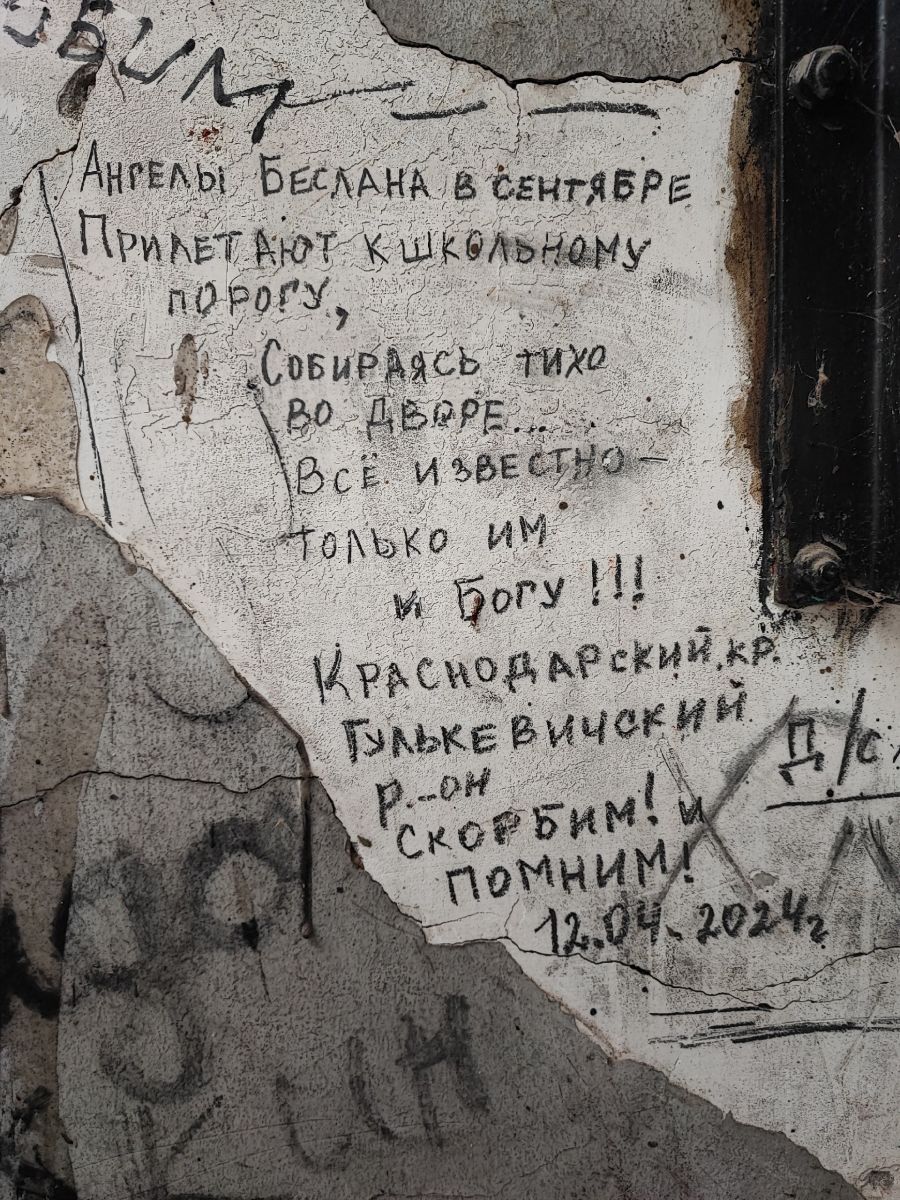 Ангелы Беслана в сентябре
Прилетают к школьному
порогу,
Собираясь тихо
во дворе...
Всё известно –
только им
и Богу!!!
Краснодарский кр.
Гулькевичский
р-он
Скорбим! и
помним!
12.04.2024г